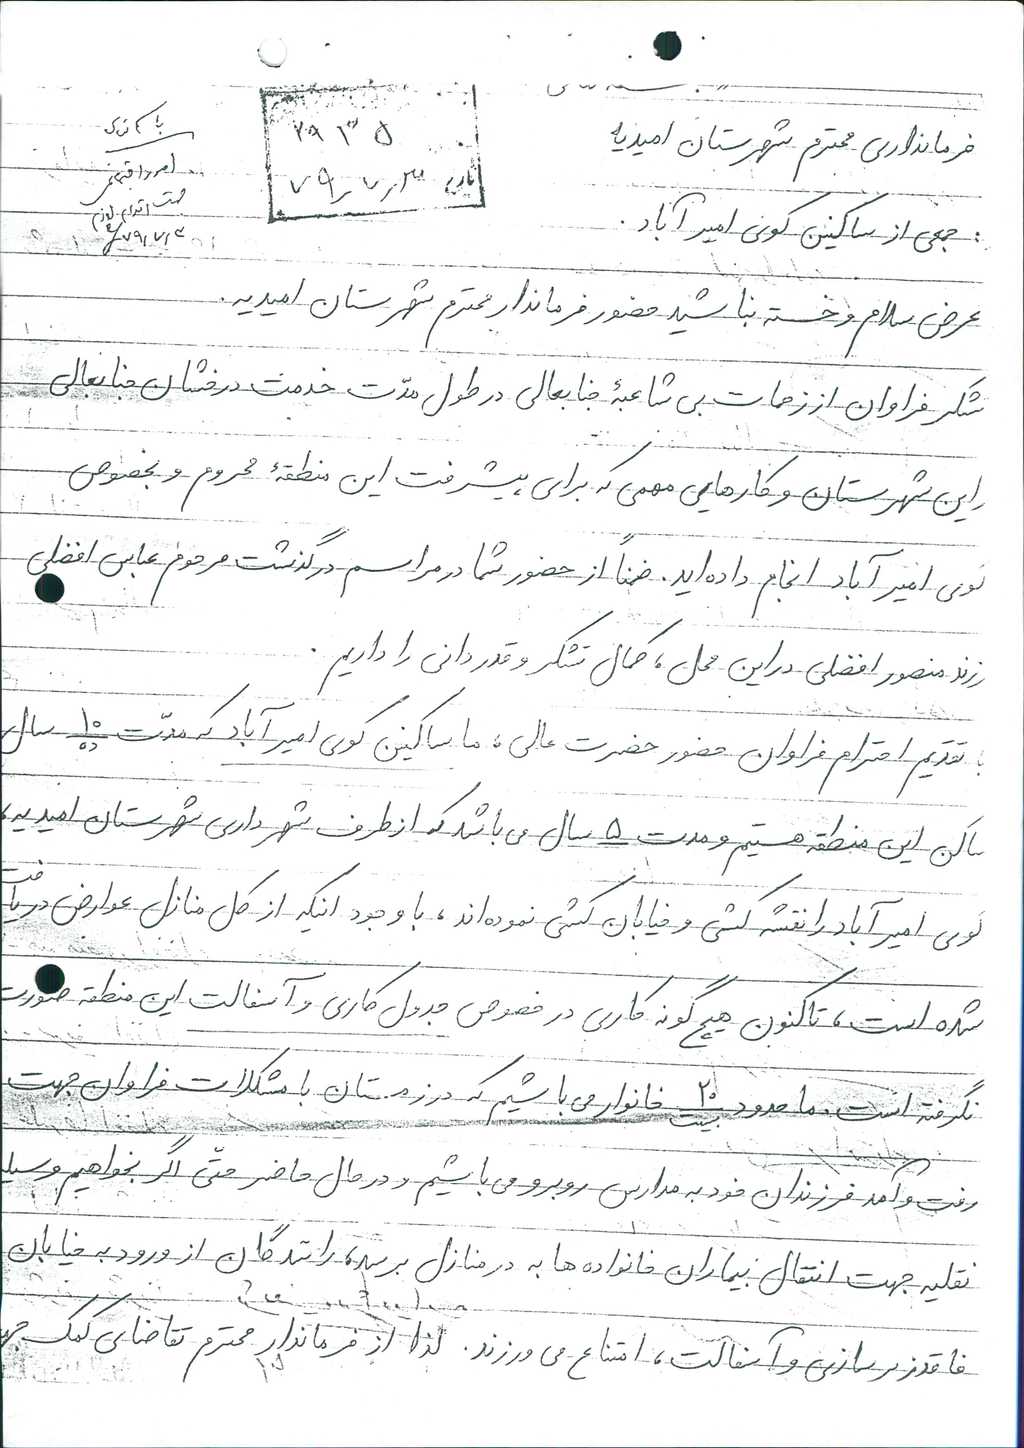 فرمانداری محترم شهرستان امیدیه
۲۹۱۳۵
تاریخ ۷۹/۷/۳
جهت اقدام لازم
۷۹/۷/۳
: جمعی از ساکنین کوی امیر آباد.
عرض سلام و خسته نباشید حضور فرماندار محترم شهرستان امیدیه.
تشکر فراوان از زحمات بی شائبهٔ جنابعالی در طول مدّت خدمت درخشان جنابعالی
در این شهرستان و کارهایی مهمی که برای پیشرفت این منطقهٔ محروم و بخصوص
کوی امیر آباد انجام داده‌اید. ضمناً از حضور شما در مراسم درگذشت مرحوم عباس افضلی
فرزند منصور افضلی در این محل، کمال تشکر و قدردانی را داریم.
با تقدیم احترام فراوان حضور حضرت عالی، ما ساکنین کوی امیر آباد که مدّت ۱۰ ده سال
ساکن این منطقه هستیم و مدت ۵ سال می باشد که از طرف شهرداری شهرستان امیدیه،
کوی امیر آباد را نقشه کشی و خیابان کشی نموده‌اند، با وجود اینکه از کل منازل عوارض دریافت
شده است، تاکنون هیچ گونه کاری در خصوص جدول کاری و آسفالت این منطقه صورت
نگرفته است. ما حدود ۲۰ بیست خانوار می باشیم که در زمستان با مشکلات فراوان جهت
رفت و آمد فرزندان خود به مدارس روبرو می باشیم و در حال حاضر حتّی اگر بخواهیم وسیله
نقلیه جهت انتقال بیماران خانواده ها به در منازل برسد، رانندگان از ورود به خیابان
فاقد زیرسازی و آسفالت، امتناع می ورزند. لذا از فرماندار محترم تقاضای کمک جهت